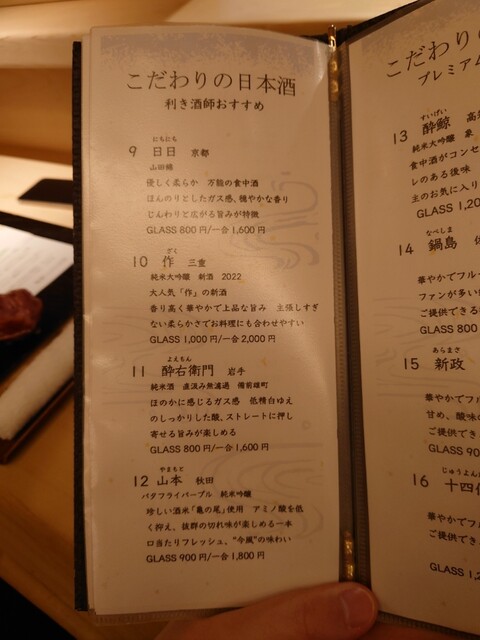 こだわりの日本酒
利き酒師おすすめ
にちにち
9 日日 京都
山田錦
優しく柔らか 万能の食中酒
ほんのりとしたガス感、穏やかな香り
じんわりと広がる旨みが特徴
GLASS 800円/一合1,600円
ざく
10 作 三重
純米大吟醸 新酒 2022
大人気「作」の新酒
香り高く華やかで上品な旨み 主張しすぎ
ない柔らかさでお料理にも合わせやすい
GLASS 1,000円/一合2,000円
よえもん
11 酔右衛門 岩手
純米酒 直汲み無濾過 備前雄町
ほのかに感じるガス感 低精白ゆえ
のしっかりした酸、ストレートに押し
寄せる旨みが楽しめる
GLASS 800円/一合1,600円
やまもと
12 山本 秋田
バタフライパープル 純米吟醸
珍しい酒米「亀の尾」使用 アミノ酸を低
く抑え、抜群の切れ味が楽しめる一本
口当たりフレッシュ、“今風”の味わい
GLASS 900円/一合1,800円
こだわり
プレミア
すいげい
13 酔鯨 高
純米大吟醸 象
食中酒がコンセ
レのある後味
主のお気に入り
GLASS 1,20
なべしま
14 鍋島
華やかでフルー
ファンが多い
ご提供できる
GLASS 800
あらまさ
15 新政
華やかでフル
甘め、酸味の
ご提供でき
GLASS 90
じゅうよん
16 十四
華やかでフ
ご提供でき
GLASS 1,2